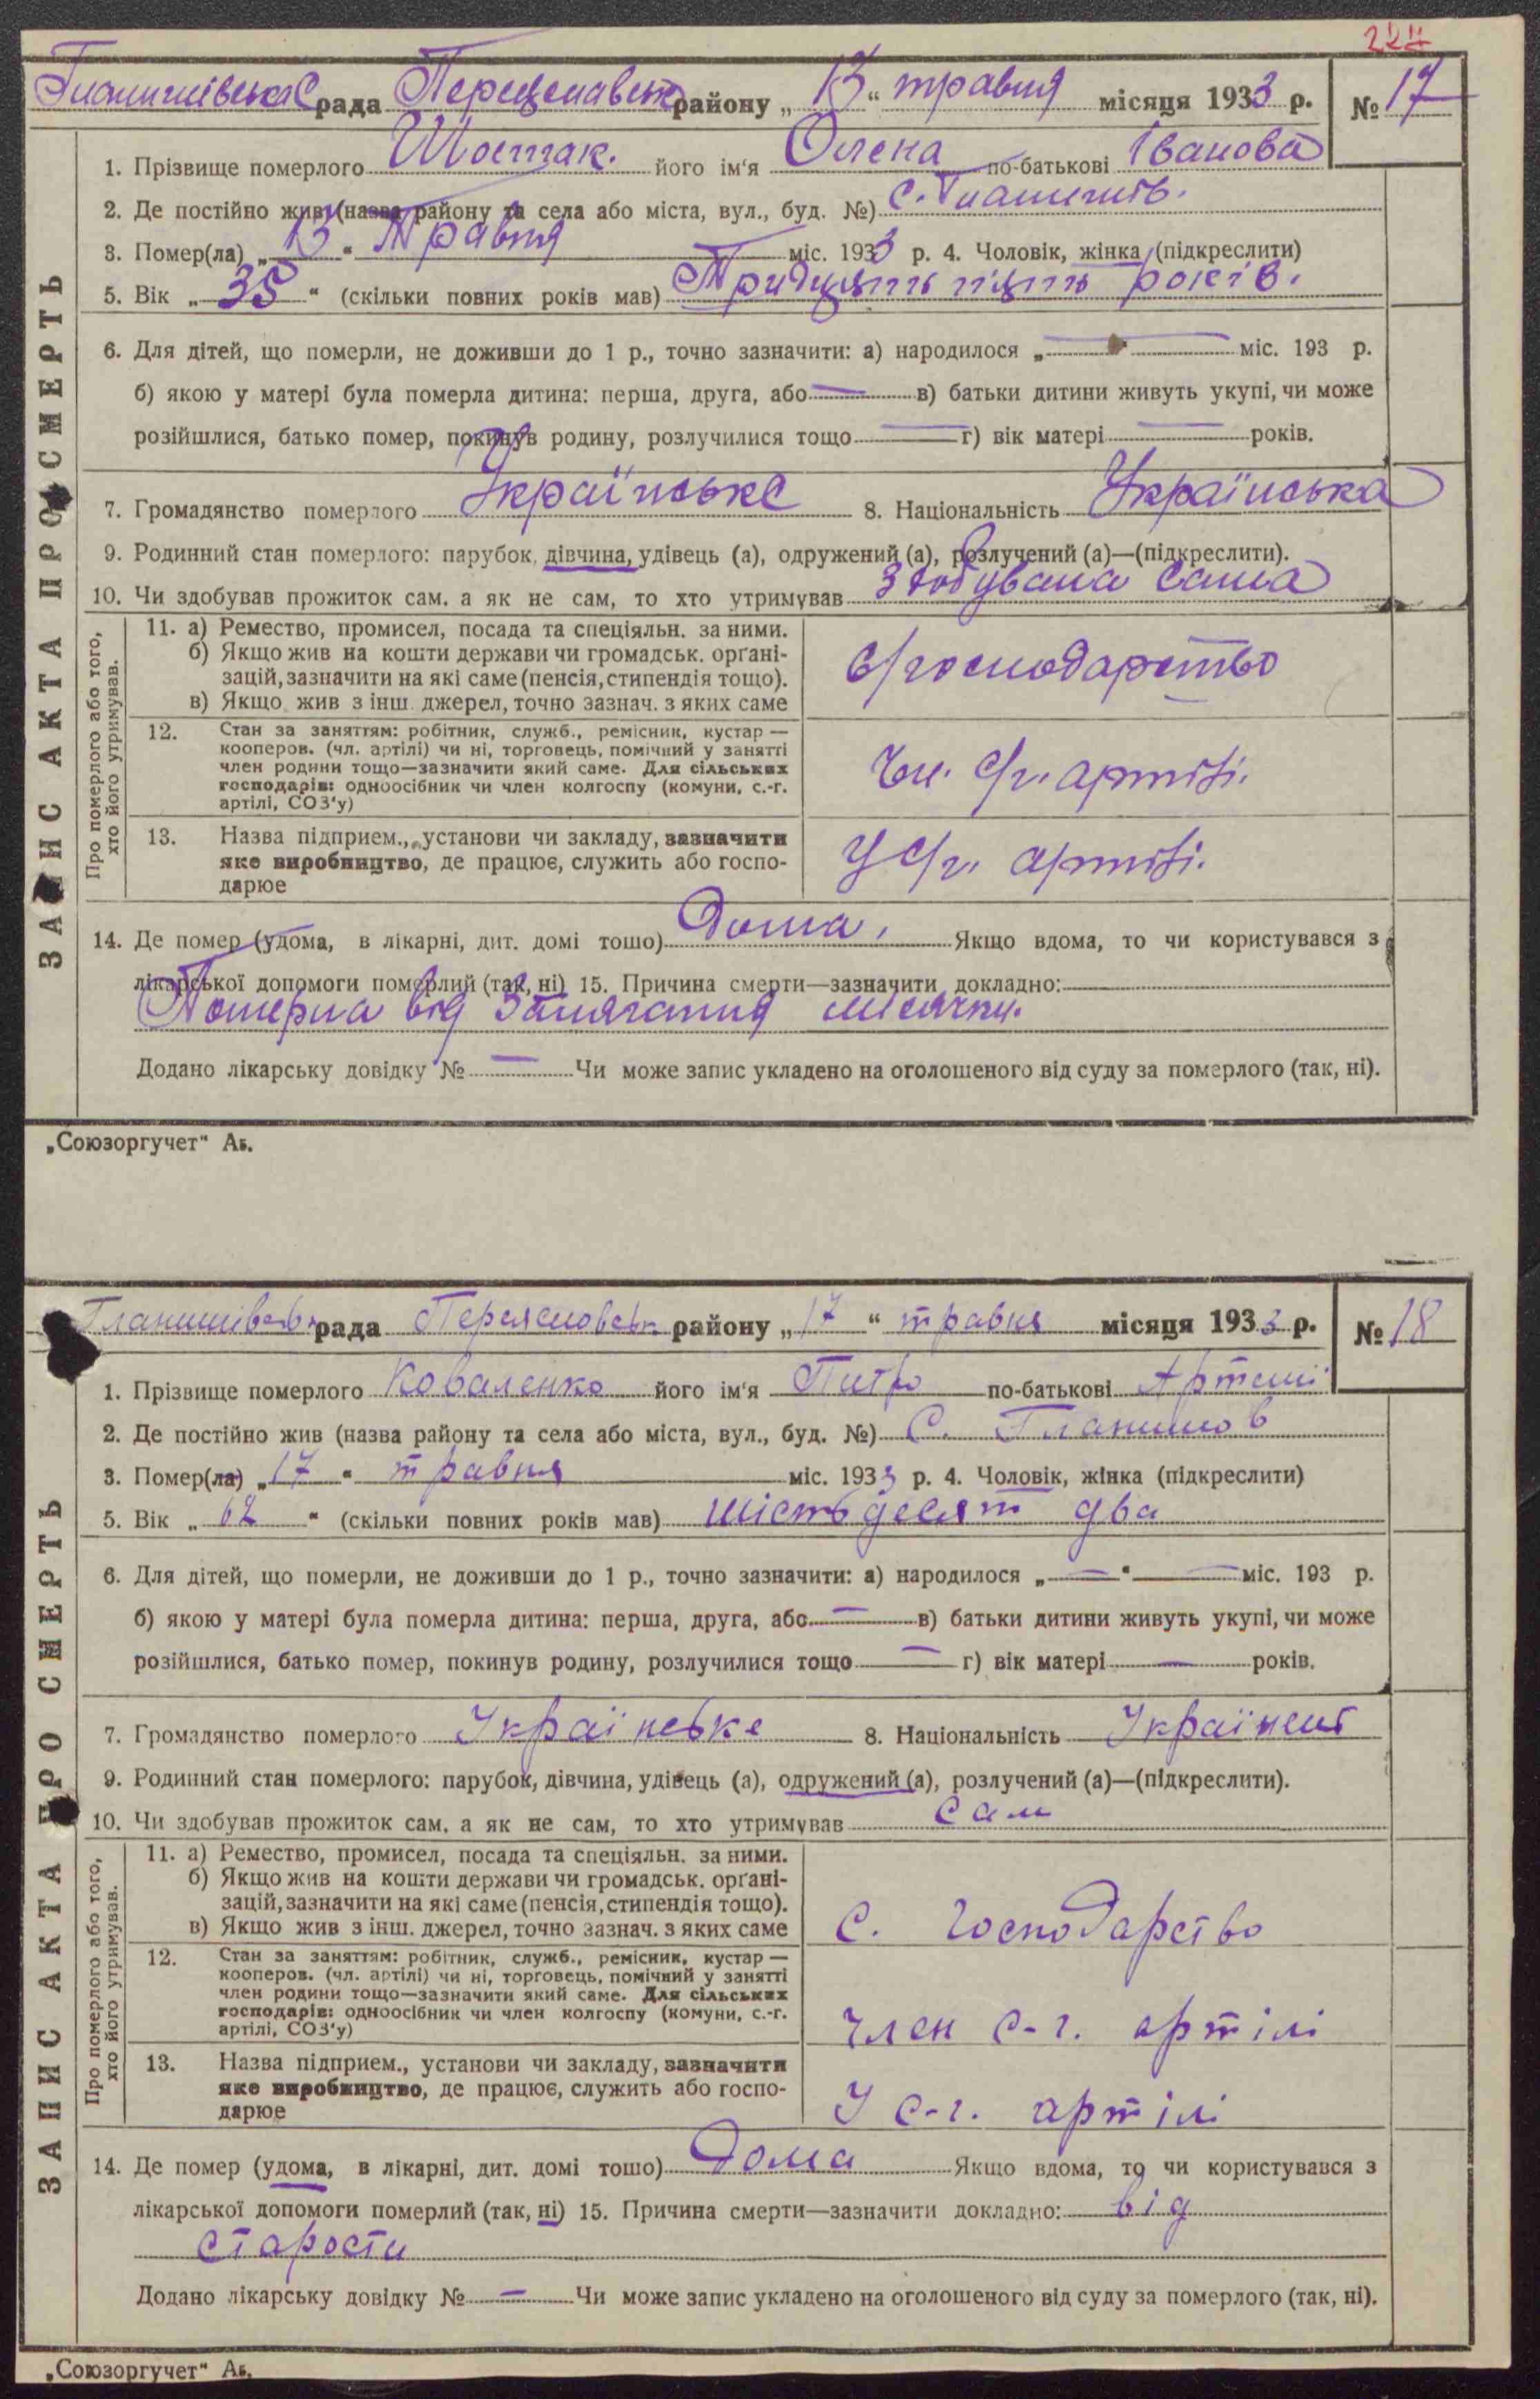 224
Гланишівська рада Переяславськ району „13“ травня місяця 1933 р. № 17
1. Прізвище померлого Шостак. його ім'я Олена по-батькові Іванова
2. Де постійно жив (назва району та села або міста, вул., буд. №) с. Гланишів.
3. Помер(ла) „13“ Травня міс. 1933 р. 4. Чоловік, жінка (підкреслити)
5. Вік „35“ (скільки повних років мав) Тридцять пять років.
6. Для дітей, що померли, не доживши до 1 р., точно зазначити: а) народилося „—“ — міс. 193 р.
б) якою у матері була померла дитина: перша, друга, або — в) батьки дитини живуть укупі, чи може
розійшлися, батько помер, покинув родину, розлучилися тощо — г) вік матері — років.
7. Громадянство померлого Українське 8. Національність Українська
9. Родинний стан померлого: парубок, дівчина, удівець (а), одружений (а), розлучений (а)—(підкреслити).
10. Чи здобував прожиток сам, а як не сам, то хто утримував здобувала сама
ЗАПИС АКТА ПРО СМЕРТЬ
Про померлого або того, хто його утримував.
11. а) Ремество, промисел, посада та спеціяльн. за ними.
б) Якщо жив на кошти держави чи громадськ. органі-
зацій, зазначити на які саме (пенсія, стипендія тощо).
в) Якщо жив з інш. джерел, точно зазнач. з яких саме
с/господарство
12. Стан за заняттям: робітник, служб., ремісник, кустар —
кооперов. (чл. артілі) чи ні, торговець, помічний у занятті
член родини тощо—зазначити який саме. Для сільських
господарів: одноосібник чи член колгоспу (комуни, с.-г.
артілі, СОЗ'у)
Чл. с/г. артілі.
13. Назва підприєм., установи чи закладу, зазначити
яке виробництво, де працює, служить або госпо-
дарює
У с/г. артілі.
14. Де помер (удома, в лікарні, дит. домі тощо) Дома. Якщо вдома, то чи користувався з
лікарської допомоги померлий (так, ні) 15. Причина смерти—зазначити докладно:
Померла від
Додано лікарську довідку № — Чи може запис укладено на оголошеного від суду за померлого (так, ні).
„Союзоргучет“ Аб.
Гланишівськ рада Переясловськ району „17“ травня місяця 1933 р. № 18
1. Прізвище померлого Коваленко його ім'я Питро по-батькові Артемі
2. Де постійно жив (назва району та села або міста, вул., буд. №) С. Гланишов
3. Помер(ла) „17“ травня міс. 1933 р. 4. Чоловік, жінка (підкреслити)
5. Вік „62“ (скільки повних років мав) шістьдесят два
6. Для дітей, що померли, не доживши до 1 р., точно зазначити: а) народилося „—“ — міс. 193 р.
б) якою у матері була померла дитина: перша, друга, або — в) батьки дитини живуть укупі, чи може
розійшлися, батько помер, покинув родину, розлучилися тощо — г) вік матері — років.
7. Громадянство померлого Українське 8. Національність Українець
9. Родинний стан померлого: парубок, дівчина, удівець (а), одружений (а), розлучений (а)—(підкреслити).
10. Чи здобував прожиток сам, а як не сам, то хто утримував сам
ЗАПИС АКТА ПРО СМЕРТЬ
Про померлого або того, хто його утримував.
11. а) Ремество, промисел, посада та спеціяльн. за ними.
б) Якщо жив на кошти держави чи громадськ. органі-
зацій, зазначити на які саме (пенсія, стипендія тощо).
в) Якщо жив з інш. джерел, точно зазнач. з яких саме
С. Господарство
12. Стан за заняттям: робітник, служб., ремісник, кустар —
кооперов. (чл. артілі) чи ні, торговець, помічний у занятті
член родини тощо—зазначити який саме. Для сільських
господарів: одноосібник чи член колгоспу (комуни, с.-г.
артілі, СОЗ'у)
член с-г. артілі
13. Назва підприєм., установи чи закладу, зазначити
яке виробництво, де працює, служить або госпо-
дарює
У с-г. артілі
14. Де помер (удома, в лікарні, дит. домі тощо) Дома Якщо вдома, то чи користувався з
лікарської допомоги померлий (так, ні) 15. Причина смерти—зазначити докладно: від
старости
Додано лікарську довідку № — Чи може запис укладено на оголошеного від суду за померлого (так, ні).
„Союзоргучет“ Аб.